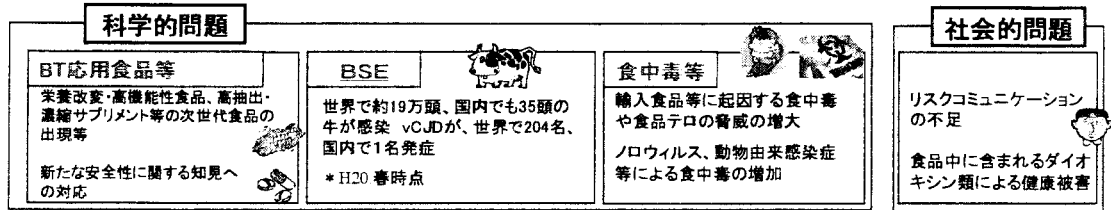 科学的問題
BT応用食品等
栄養改変・高機能性食品、高抽出・
濃縮サプリメント等の次世代食品の
出現等
新たな安全性に関する知見へ
の対応
BSE
世界で約19万頭、国内でも35頭の
牛が感染 vCJDが、世界で204名、
国内で1名発症
*H20.春時点
食中毒等
輸入食品等に起因する食中毒
や食品テロの脅威の増大
ノロウィルス、動物由来感染症
等による食中毒の増加
社会的問題
リスクコミュニケーション
の不足
食品中に含まれるダイオ
キシン類による健康被害